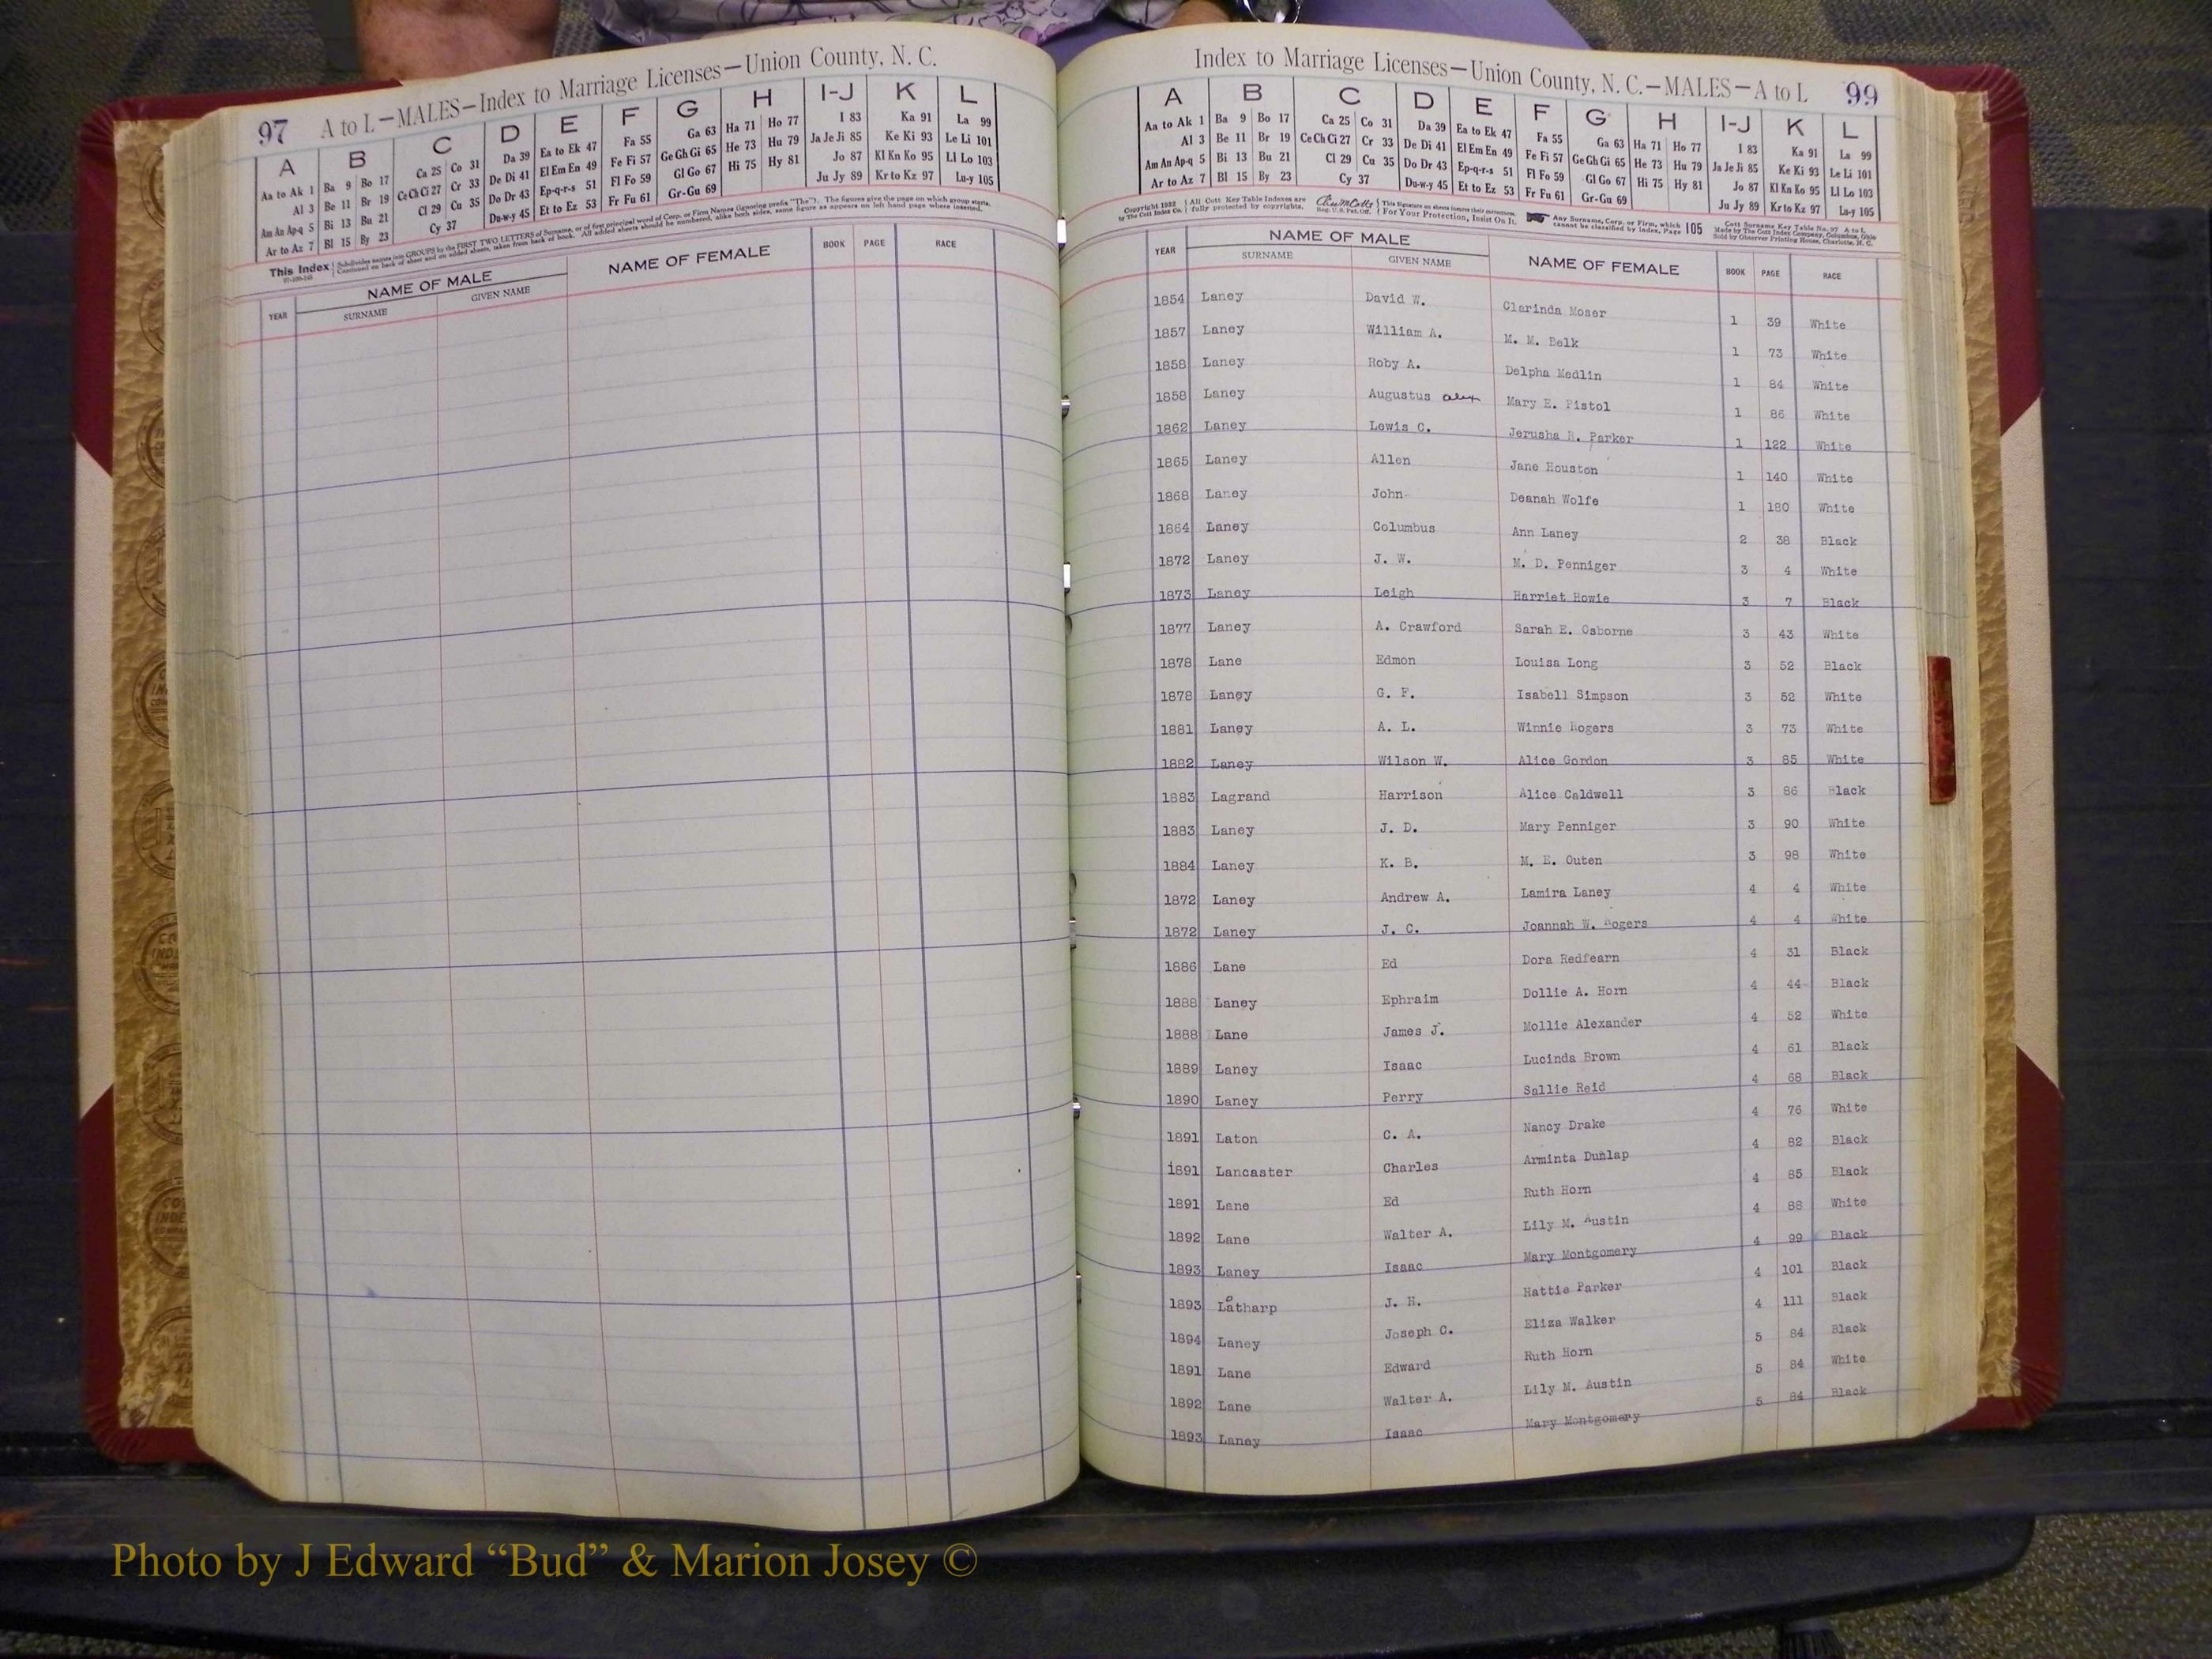 97 A to L—MALES—Index to Marriage Licenses—Union County, N. C.
A B C D E F G H I-J K L
Aa to Ak 1 Ba 9 Bo 17 Ca 25 Co 31 Da 39 Ea to Ek 47 Fa 55 Ga 63 Ha 71 Ho 77 I 83 Ka 91 La 99
Al 3 Be 11 Br 19 Ce Ch Ci 27 Cr 33 De Di 41 El Em En 49 Fe Fi 57 Ge Gh Gi 65 He 73 Hu 79 Ja Je Ji 85 Ke Ki 93 Le Li 101
Am An Ap-q 5 Bi 13 Bu 21 Cl 29 Cu 35 Do Dr 43 Ep-q-r-s 51 Fl Fo 59 Gl Go 67 Hi 75 Hy 81 Jo 87 Kl Kn Ko 95 Ll Lo 103
Ar to Az 7 Bl 15 By 23 Cy 37 Du-w-y 45 Et to Ez 53 Fr Fu 61 Gr-Gu 69 Ju Jy 89 Kr to Kz 97 Lu-y 105
This Index Subdivides names into GROUPS by the FIRST TWO LETTERS of Surname, or of first principal word of Corp. or Firm Names (ignoring prefix "The"). The figures give the page on which group starts.
Continued on back of sheet and on added sheets, taken from back of book. All added sheets should be numbered, alike both sides, same figure as appears on left hand page where inserted.
YEAR NAME OF MALE SURNAME GIVEN NAME NAME OF FEMALE BOOK PAGE RACE
Index to Marriage Licenses—Union County, N. C.—MALES—A to L 99
A B C D E F G H I-J K L
Aa to Ak 1 Ba 9 Bo 17 Ca 25 Co 31 Da 39 Ea to Ek 47 Fa 55 Ga 63 Ha 71 Ho 77 I 83 Ka 91 La 99
Al 3 Be 11 Br 19 Ce Ch Ci 27 Cr 33 De Di 41 El Em En 49 Fe Fi 57 Ge Gh Gi 65 He 73 Hu 79 Ja Je Ji 85 Ke Ki 93 Le Li 101
Am An Ap-q 5 Bi 13 Bu 21 Cl 29 Cu 35 Do Dr 43 Ep-q-r-s 51 Fl Fo 59 Gl Go 67 Hi 75 Hy 81 Jo 87 Kl Kn Ko 95 Ll Lo 103
Ar to Az 7 Bl 15 By 23 Cy 37 Du-w-y 45 Et to Ez 53 Fr Fu 61 Gr-Gu 69 Ju Jy 89 Kr to Kz 97 Lu-y 105
Copyright 1932 by The Cott Index Co. All Cott Key Table Indexes are fully protected by copyrights. Reg. U. S. Pat. Off. For Your Protection, Insist On It. Any Surname, Corp. or Firm, which cannot be classified by Index, Page 105 Cott Surname Key Table No. 97 A to L Made by The Cott Index Company, Columbus, Ohio Sold by Observer Printing House, Charlotte, N. C.
YEAR NAME OF MALE SURNAME GIVEN NAME NAME OF FEMALE BOOK PAGE RACE
1854 Laney David W. Clarinda Moser 1 39 White
1857 Laney William A. M. M. Belk 1 73 White
1858 Laney Roby A. Delpha Medlin 1 84 White
1858 Laney Augustus alex Mary E. Pistol 1 86 White
1862 Laney Lewis C. Jerusha Parker 1 122 White
1865 Laney Allen Jane Houston 1 140 White
1868 Laney John Deanah Wolfe 1 180 White
1864 Laney Columbus Ann Laney 2 38 Black
1872 Laney J. W. M. D. Penniger 3 4 White
1873 Laney Leigh Harriet Howie 3 7 Black
1877 Laney A. Crawford Sarah E. Osborne 3 43 White
1878 Lane Edmon Louisa Long 3 52 Black
1878 Laney G. F. Isabell Simpson 3 52 White
1881 Laney A. L. Winnie Rogers 3 73 White
1882 Laney Wilson W. Alice Gordon 3 85 White
1883 Lagrand Harrison Alice Caldwell 3 86 Black
1883 Laney J. D. Mary Penniger 3 90 White
1884 Laney K. B. M. E. Outen 3 98 White
1872 Laney Andrew A. Lamira Laney 4 4 White
1872 Laney J. C. Joannah W. Rogers 4 4 White
1886 Lane Ed Dora Redfearn 4 31 Black
1888 Laney Ephraim Dollie A. Horn 4 44 Black
1888 Lane James J. Mollie Alexander 4 52 White
1889 Laney Isaac Lucinda Brown 4 61 Black
1890 Laney Perry Sallie Reid 4 68 Black
1891 Laton C. A. Nancy Drake 4 76 White
1891 Lancaster Charles Arminta Dunlap 4 82 Black
1891 Lane Ed Ruth Horn 4 85 Black
1892 Lane Walter A. Lily M. Austin 4 88 White
1893 Laney Isaac Mary Montgomery 4 99 Black
1893 Latharp J. H. Hattie Parker 4 101 Black
1894 Laney Joseph C. Eliza Walker 4 111 Black
1891 Lane Edward Ruth Horn 5 84 Black
1892 Lane Walter A. Lily M. Austin 5 84 White
1893 Laney Isaac Mary Montgomery 5 84 Black
Photo by J Edward “Bud” & Marion Josey ©